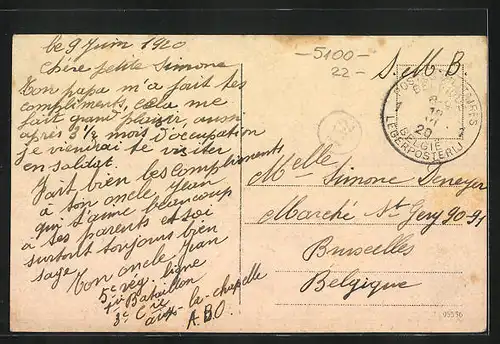 le 9 Juin 1920
Chère petite Simone
Ton papa m'a fait tes
compliments, cela me
fait grand plaisir, aussi
après 3 1/2 mois d'occupation
je viendrai te visiter
en soldat.
Fait bien les compliments
a ton oncle Jean
qui t'aime beaucoup
à tes parents et soi
surtout toujours bien
sage
Ton oncle Jean
5e reg. ligne
1r Bataillon
3e Cie
aix-la-chapelle
A.B.O.
-5100-
22-
S.M.B.
POSTES
BELGIQUE
20
BELGIE
LEGERPOSTERIJ
Melle Simone Deneyer
Marché St Gery 90-91
Bruxelles
Belgique